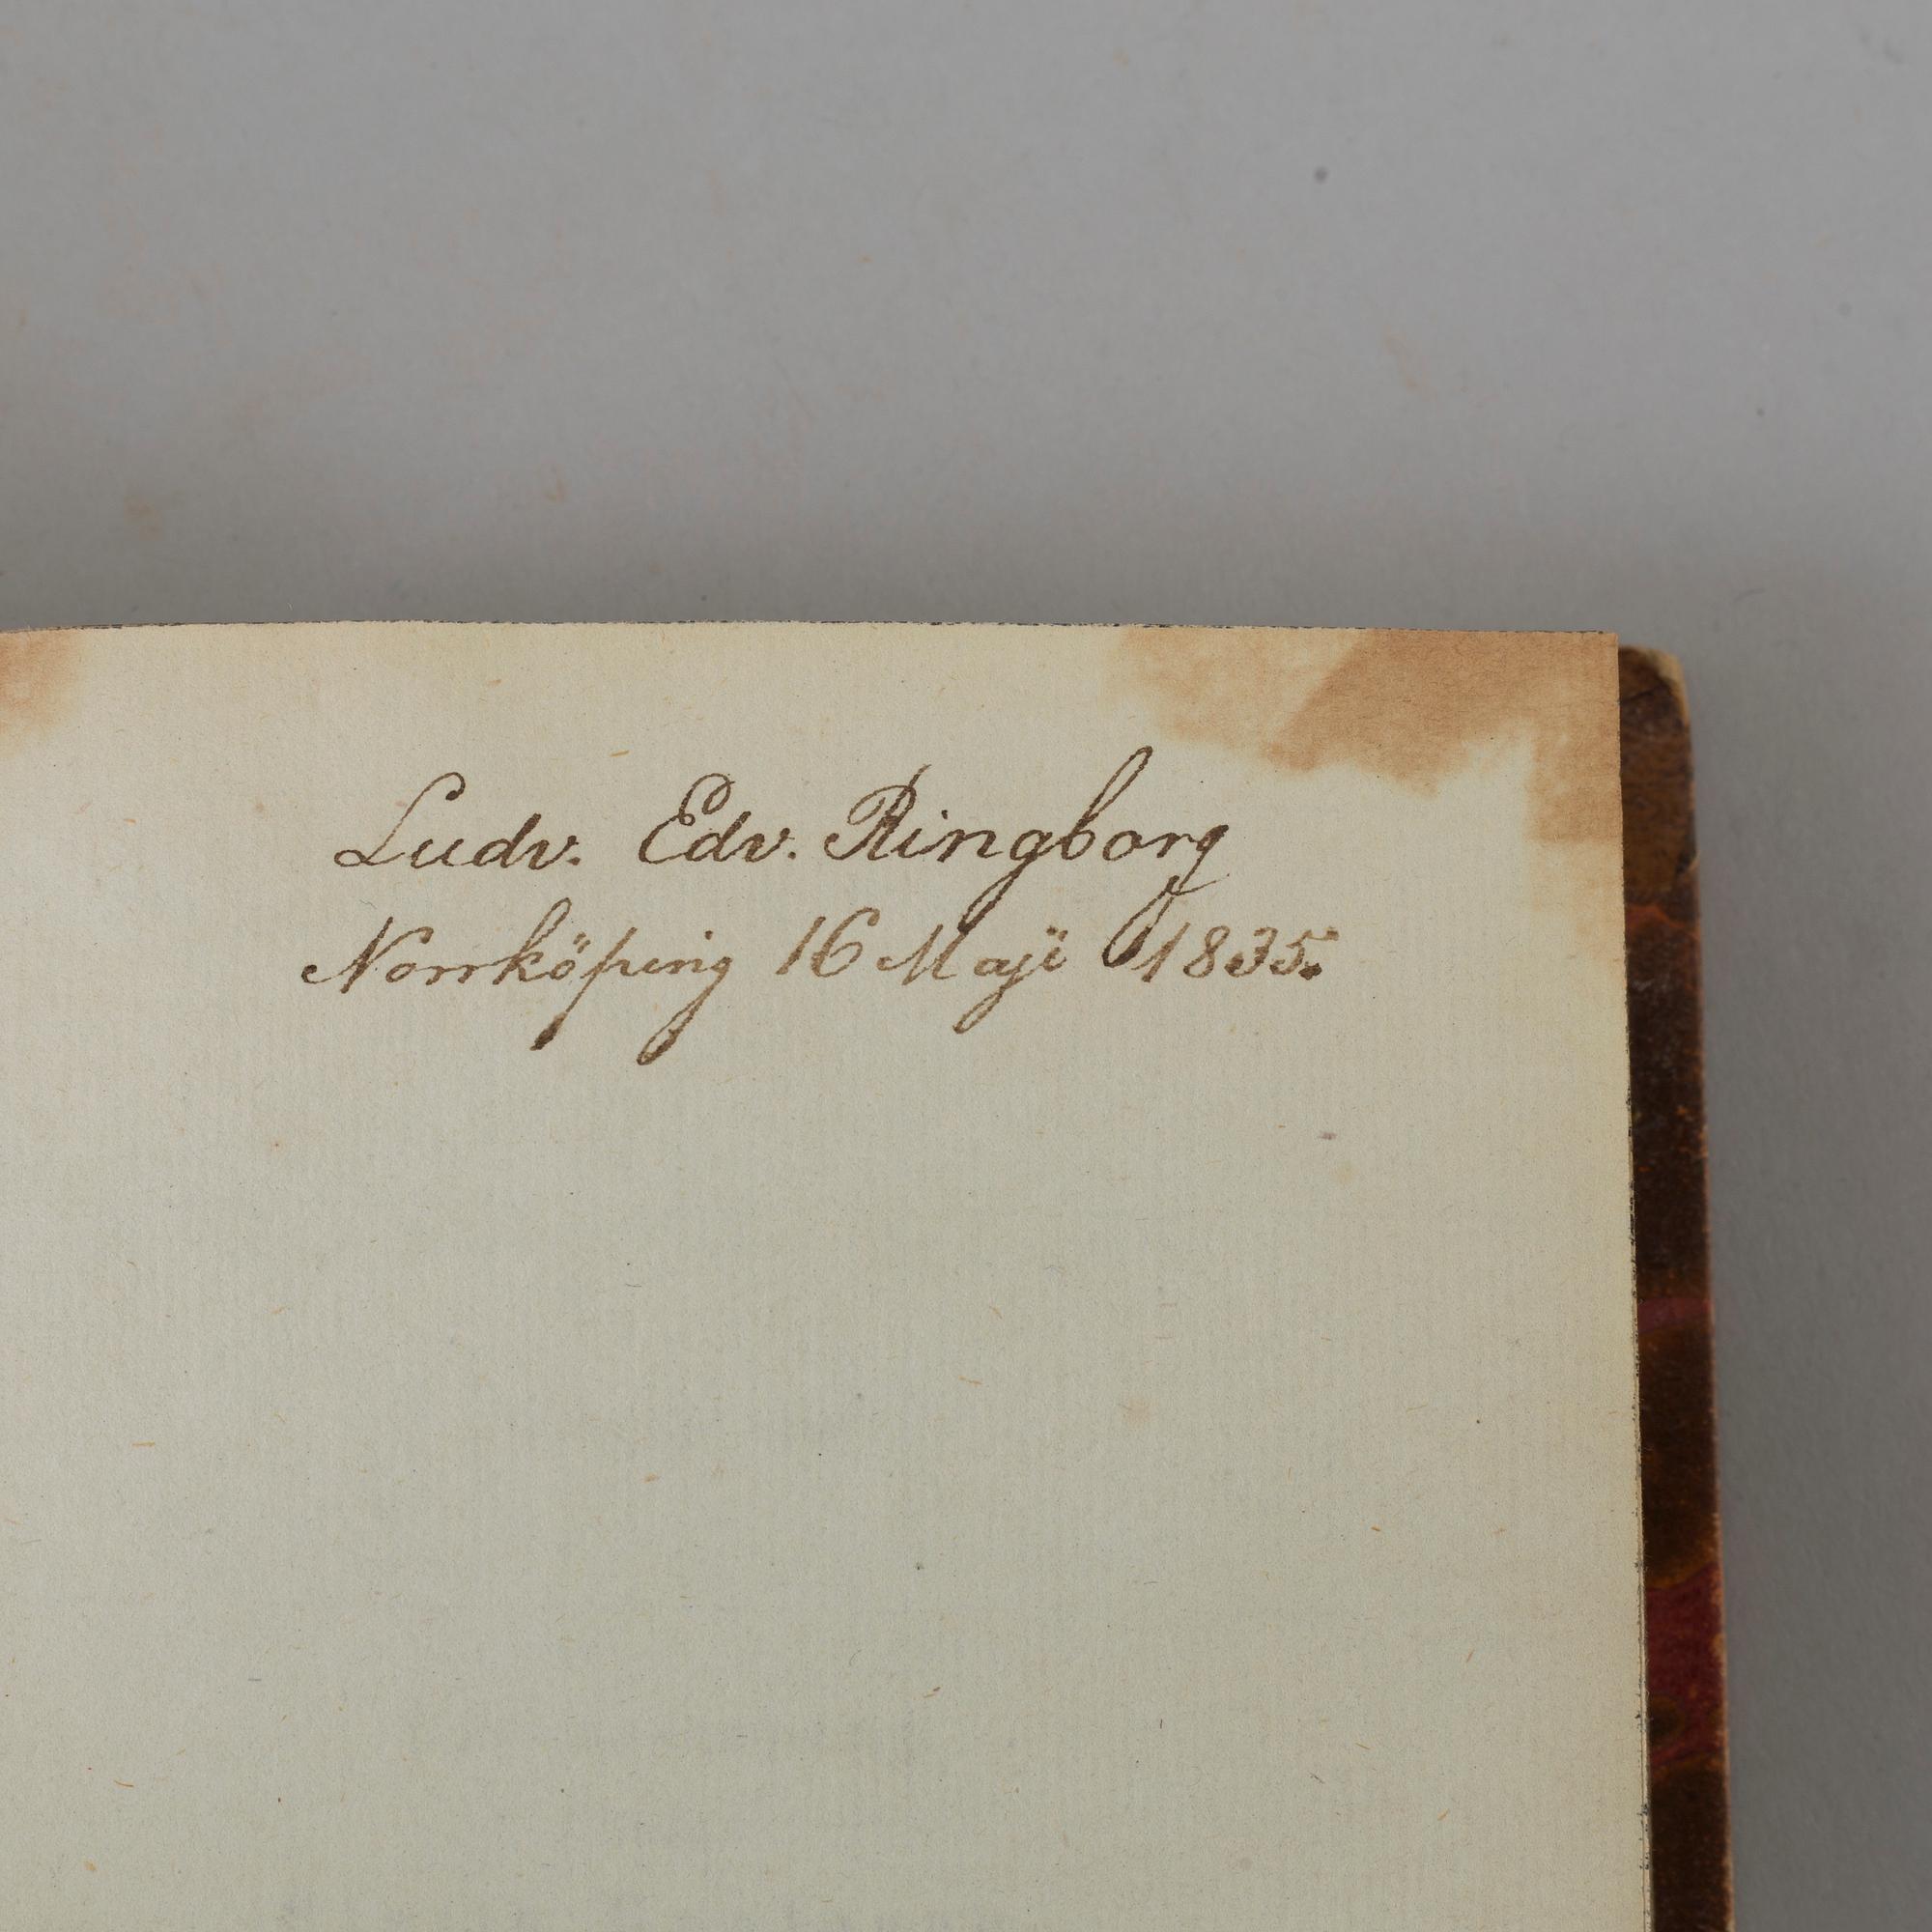 Ludv. Edv. Ringborg
Norrköping 16 Maji 1835.